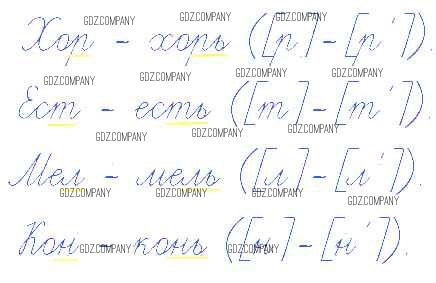 GDZ.COMPANY GDZ.COMPANY
Хор - хорь ([р] - [р']).
GDZ.COMPANY GDZ.COMPANY GDZ.COMPANY GDZ.COMPANY
Ест - есть ([т] - [т']).
GDZ.COMPANY GDZ.COMPANY GDZ.COMPANY
Мел - мель ([л] - [л']).
GDZ.COMPANY GDZ.COMPANY GDZ.COMPANY GDZ.COMPANY
Кон - конь ([н] - [н']).
GDZ.COMPANY GDZ.COMPANY GDZ.COMPANY